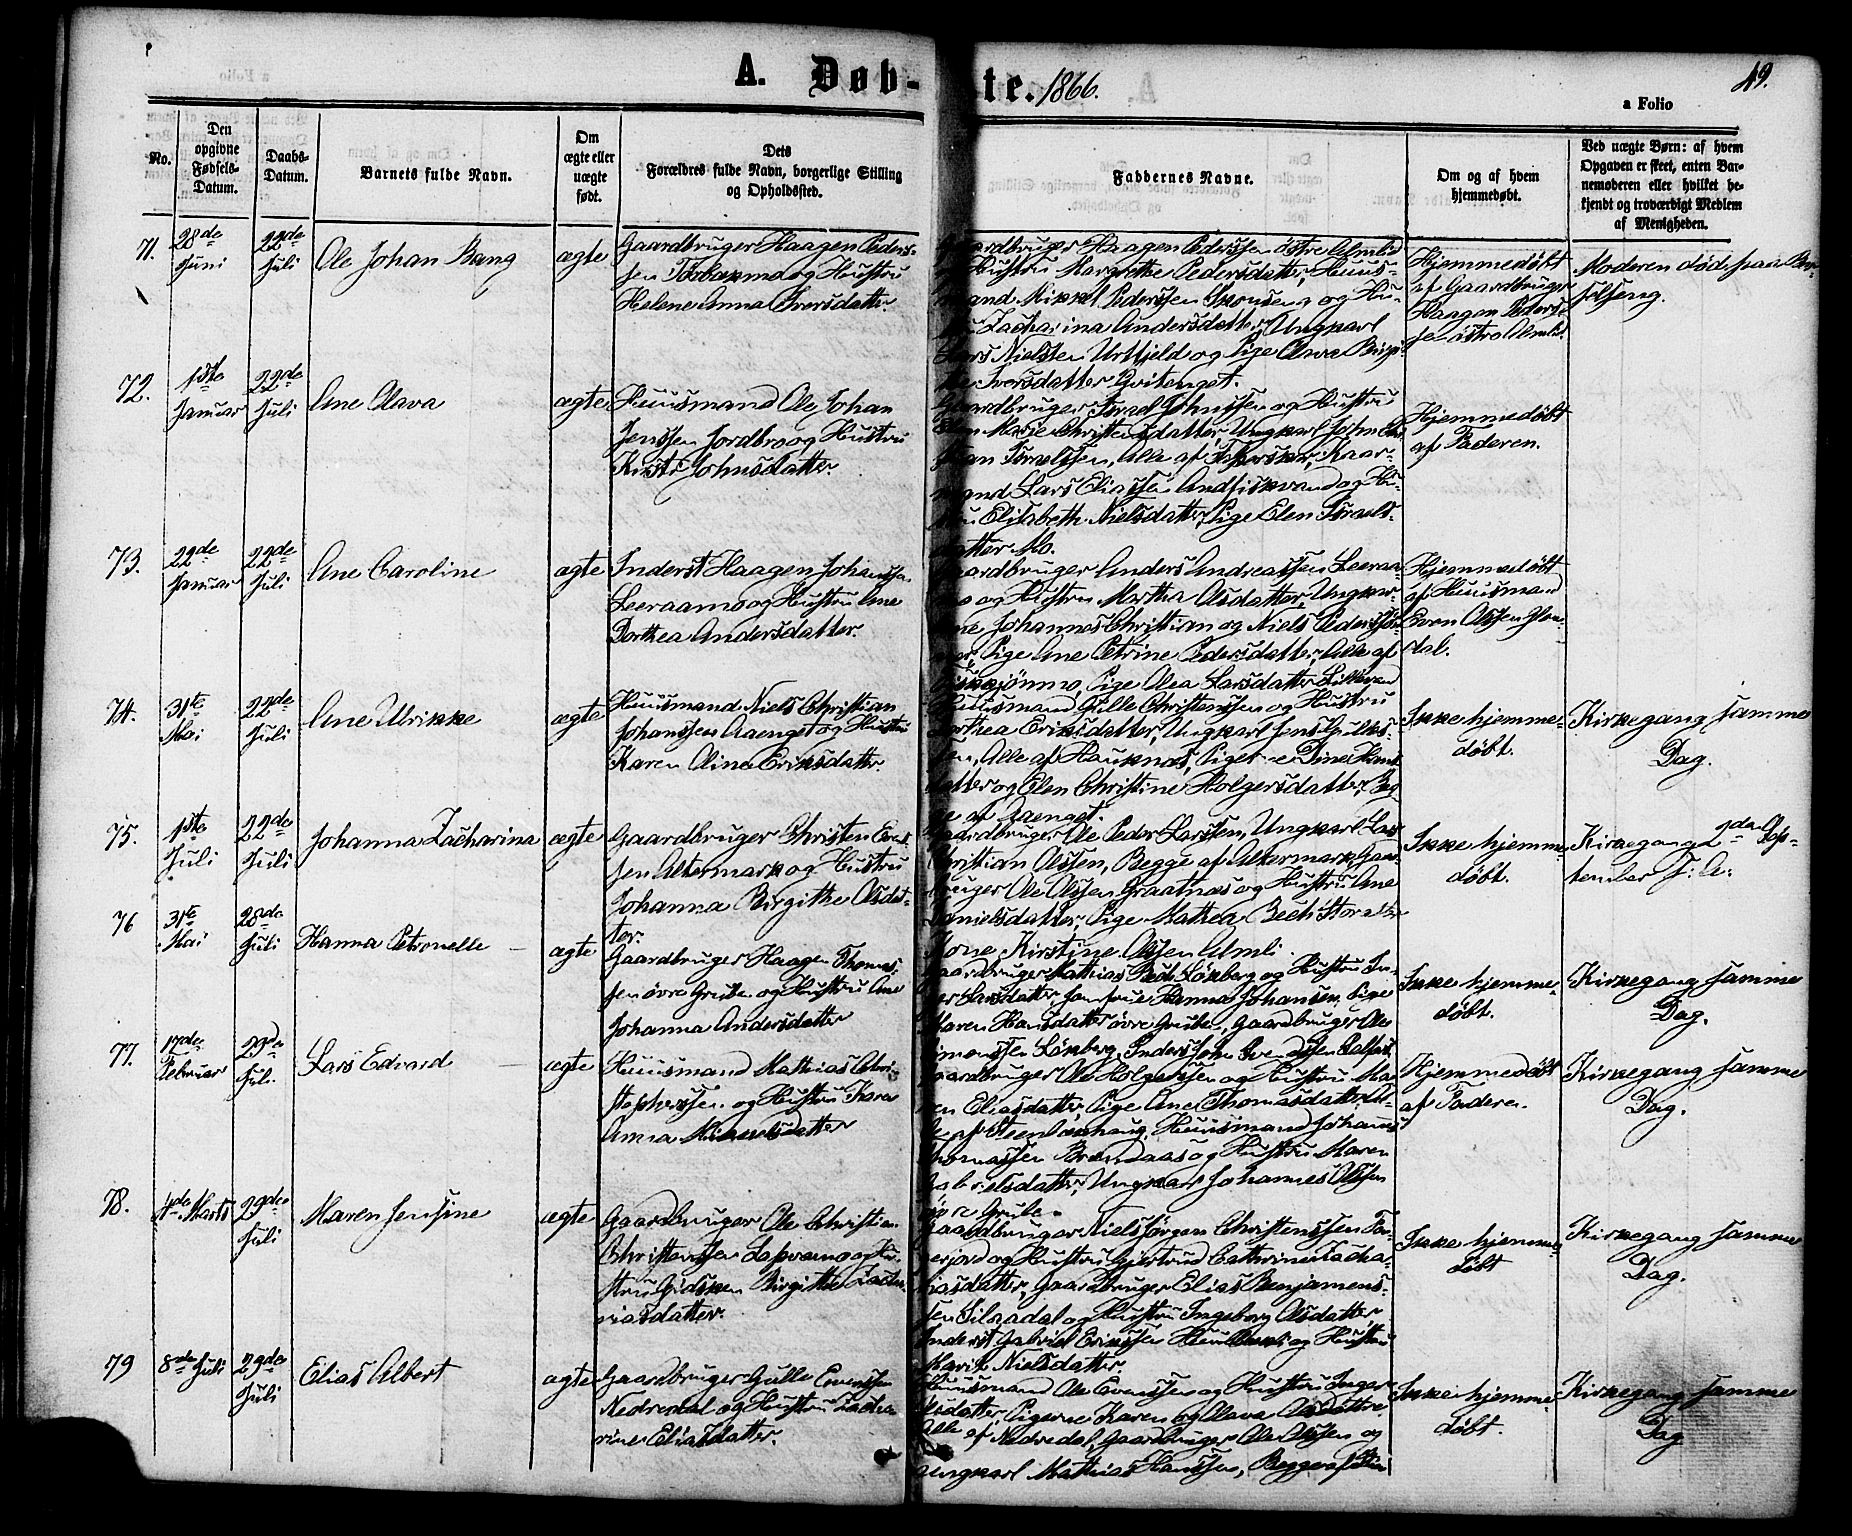 A. Døb-te. 1866.
49.
a Folio
No.
Den opgivne Fødsels-Datum.
Daabs-Datum.
Barnets fulde Navn.
Om ægte eller uægte født.
Dets Forældres fulde Navn, borgerlige Stilling og Opholdssted.
Faddernes Navne.
Om og af hvem hjemmedøbt.
Ved uægte Børn: af hvem Opgaven er skeet, enten Barnemoderen eller hvilket bekjendt og troværdigt Medlem af Menigheden.
71.
28de Juni
22de Juli
Ole Johan Bang
ægte
Gaardbruger Haagen Peders-
sen og Hustru
Helene Anna Iversdatter.
Gaardbruger Haagen Pederssen østre Almlid
og Hustru Margrethe Pedersdatter, Huus-
mand Mikkel Pederssen og Hu-
stru Zacharina Andersdatter, Ungkarl
Lars Nielssen Urtfjeld og Pige Olava Birgi-
the Iversdatter Hvitenget.
Hjemmedøbt
af Gaardbruger
Haagen Peders-
sen østre Almlid.
Moderen død paa Bar-
selseng.
72.
1ste Januar
22de Juli
Ane Olava
ægte
Huusmand Ole Johan
Jenssen Jordbro og Hustru
Kirsti Johnsdatter.
Gaardbruger Israel Johnssen og Hustru
Elen Marie Christensdatter, Ungkarl John
Israelssen, Alle af Kaar-
mand Lars Eliassen Andfiskvand og Hu-
stru Elisabeth Nielsdatter, Pige Elen Israels-
datter Mo.
Hjemmedøbt
af Faderen.
73.
22de Januar
22de Juli
Ane Caroline
ægte
Inderst Haagen Johanssen
Leeraamo og Hustru Ane
Dorthea Andersdatter.
Gaardbruger Anders Andreassen Leeraa-
mo og Hustru Martha Olsdatter, Ungkar-
lene Johannes Christian og Niels Pederssøn-
ner, Pige Ane Petrine Pedersdatter, Alle af
Pige Olea Larsdatter
Hjemmedøbt
af Huusmand
Even Olssen
dal.
74.
31te Mai
22de Juli
Ane Ulrikke
ægte
Huusmand Niels Christian
Johanssen Aaenget og Hustru
Karen Olina Eriksdatter.
Huusmand Gulle Christenssen og Hustru
Dorthea Eriksdatter, Ungkarl Jens Gulles-
sen, Alle af Hauknæs, Piger-e Dina Hans-
datter og Elen Christine Holgersdatter, Beg-
ge af Aaenget.
Ikke hjemme-
døbt.
Kirkegang samme
Dag.
75.
1ste Juli
22de Juli
Johanna Zacharina
ægte
Gaardbruger Christen Ens-
sen Altermark og Hustru
Johanna Birgithe Olsdat-
ter.
Gaardbruger Ole Peder Larssen, Ungkarl Lars
Christian Olssen, Begge af Altermark, Gaard-
bruger Ole Olssen Graatnæs og Hustru Ane
Danielsdatter, Pige Mathea Bech
Kone Kirstine Olssen Almli.
Ikke hjemme-
døbt.
Kirkegang 2den Sep-
tember F: A:
76
31te Mai
28de Juli
Hanna Petronelle
ægte
Gaardbruger Haagen Thomas-
sen øvre Gruben og Hustru Ane
Johanna Andersdatter
Gaardbruger Mathias Peder Lønberg og Hustru In-
ger Larsdatter, Jomfrue Hanna Johansen, Pige
Maren Hansdatter øvre Gruben, Gaardbruger Ole
Simonssen Lønberg, Inderst John Svendssen
Ikke hjemme-
døbt.
Kirkegang samme
Dag.
77.
17de Februar
29de Juli
Lars Edvard
ægte
Huusmand Mathias Chri-
stophersen og Hustru Karen
Anna Mikkelsdatter
Gaardbruger Ole Holgerssen og Hustru Ma-
ren Eliasdatter, Pige Ane Thomasdatter, Al-
le af Steenløkhaug, Huusmand Johannes
Thomassen Brendaas og Hustru Maren
Gabrielsdatter, Ungkarl Johannes Olssen
øvre Gruben.
Hjemmedøbt
af Faderen.
Kirkegang samme
Dag.
78.
4de Marts
29de Juli
Maren Jensine
ægte
Gaardbruger Ole Christian
Christenssen Lapvamo og Hu-
stru Gidsken Birgithe Zacha-
riasdatter.
Gaardbruger Niels Jørgen Christenssen
og Hustru Gjertrud Cathrine Zacha-
riasdatter, Gaardbruger Elias Benjamins-
sen Silaadal og Hustru Ingeborg Olsdatter,
Inderst Gabriel Erikssen og Hustru
Marit Nielsdatter.
Ikke hjemme-
døbt
Kirkegang samme
Dag.
79
8de Juli
29de Juli
Elias Albert
ægte
Gaardbruger Gulle Evenssen
Nedredal og Hustru Zacha-
rine Eliasdatter.
Huusmand Ole Evenssen og Hustru Inger
Olsdatter, Pigerne Karen og Olava Olsdøttre
Alle af Nedredal, Gaardbruger Ole Olssen og
Ungkarl Mathias Hanssen, Begge af
Ikke hjemme-
døbt.
Kirkegang samme
Dag